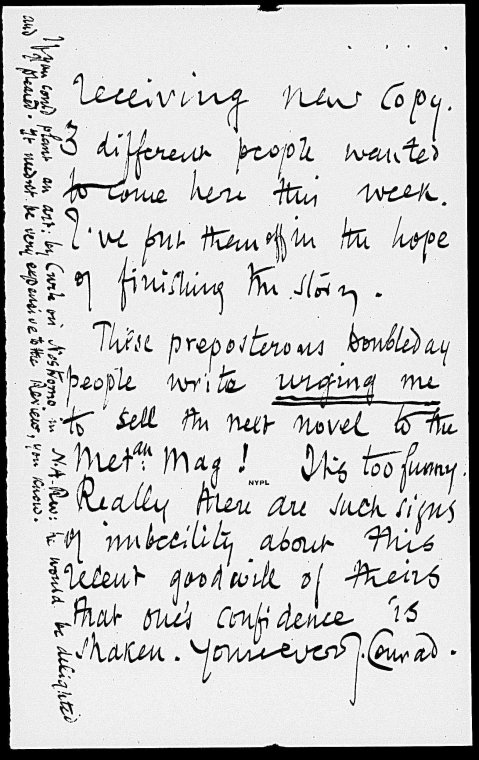 receiving new copy.
3 different people wanted
to come here this week.
I've put them off in the hope
of finishing the story.
These preposterous Doubleday
people write urging me
to sell the next novel to the
Metan Mag! It is too funny.
NYPL
Really there are such signs
of imbecility about this
recent goodwill of theirs
that one's confidence is
shaken. Yours ever J. Conrad.
If you could plant an art: by Curle on Nostromo in N.A-Rev: he would be delighted
and pleased. It needn't be very expensive to the Review, you know.